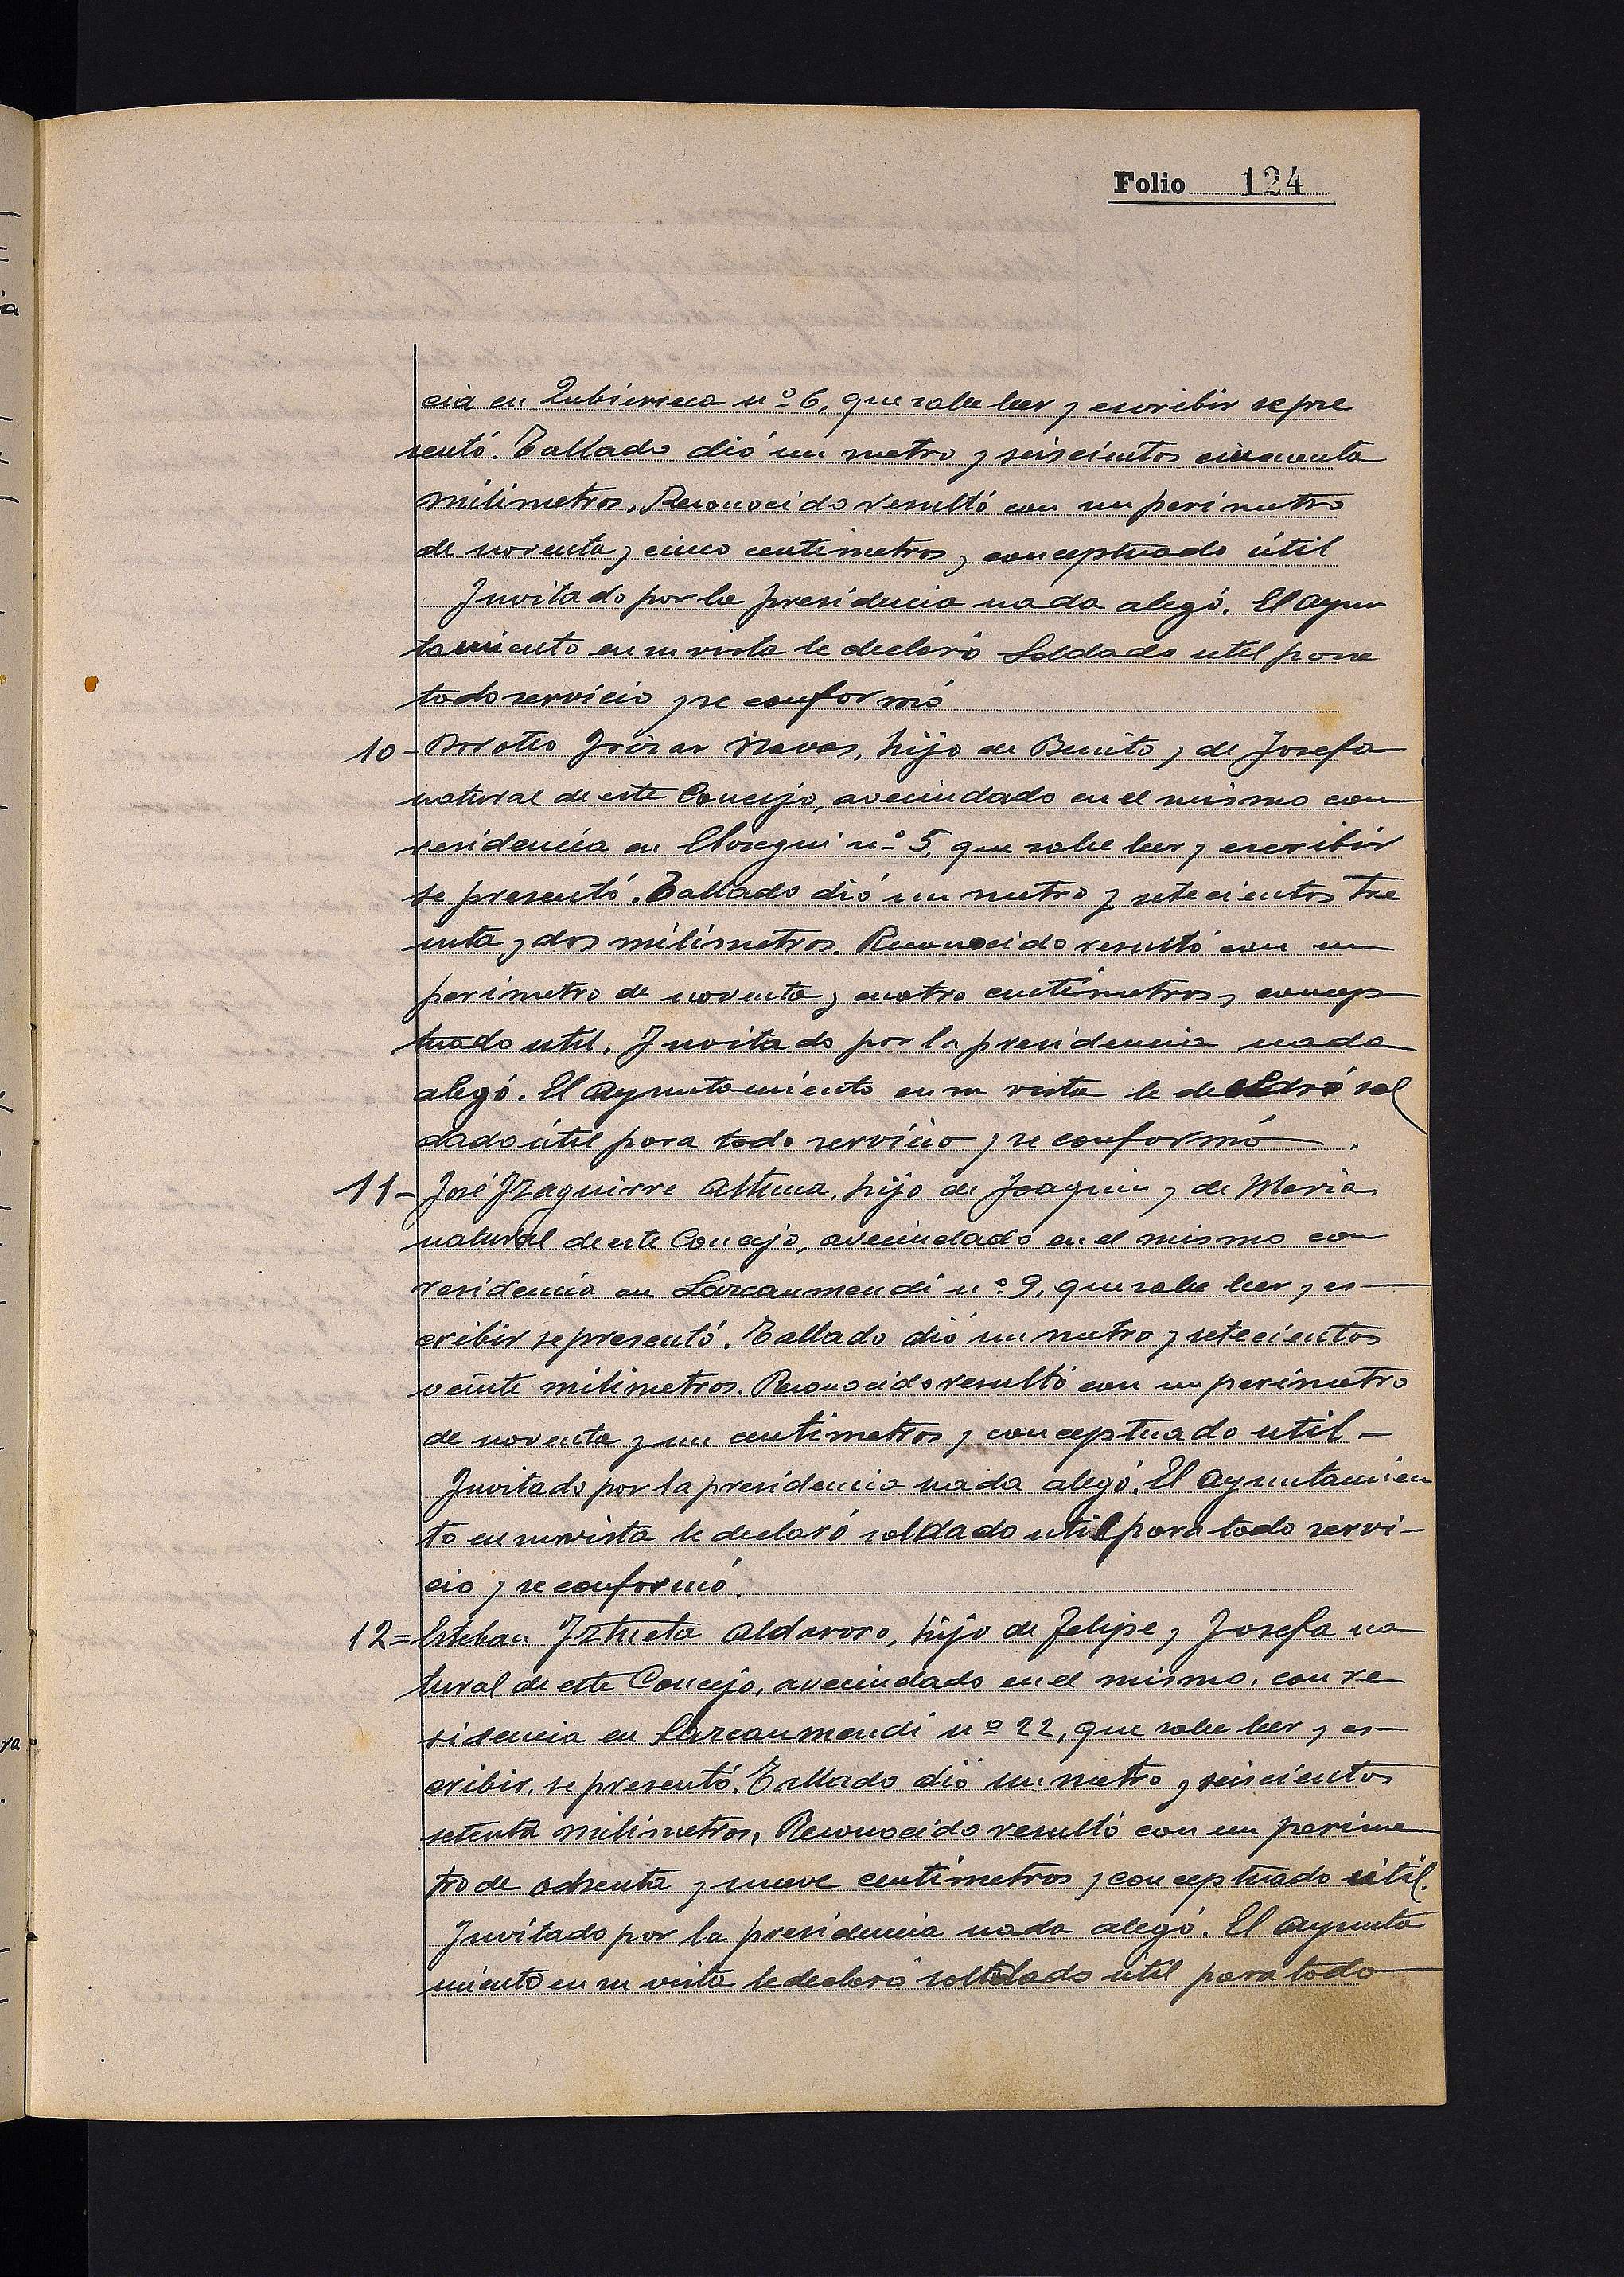 Folio 124
cia en Zubierreca nº 6, que sabe leer y escribir se pre
sentó. Tallado dió un metro y seiscientos cincuenta
milimetros. Reconocido resultó con un perimetro
de noventa y cinco centimetros y conceptuado útil
Invitado por la presidencia nada alegó. El Ayun
tamiento en su vista le declaró Soldado util para
todo servicio y se conformó
10- Doroteo Goizar Navas, hijo de Benito y de Josefa
natural de este Concejo, avecindado en el mismo con
residencia en Elosegui nº 5, que sabe leer y escribir
se presentó. Tallado dió un metro y setecientos tre
inta y dos milimetros. Reconocido resultó con un
perimetro de noventa y cuatro centimetros y concep
tuado util. Invitado por la presidencia nada
alegó. El Ayuntamiento en su vista le declaró sol
dado útil para todo servicio y se conformó.
11- José Izaguirre Altuna, hijo de Joaquin y de Maria
natural de este Concejo, avecindado en el mismo con
residencia en Lazcanmendi nº 9, que sabe leer y es-
cribir se presentó. Tallado dió un metro y setecientos
veinte milimetros. Reconocido resultó con un perimetro
de noventa y un centimetros y conceptuado util-
Invitado por la presidencia nada alegó. El Ayuntamien
to en su vista le declaró soldado util para todo servi-
cio y se conformó.
12= Esteban Iztueta Aldasoro, hijo de Felipe y Josefa na
tural de este Concejo, avecindado en el mismo, con re
sidencia en Lazcanmendi nº 22, que sabe leer y es-
cribir, se presentó. Tallado dió un metro y seiscientos
setenta milimetros. Reconocido resultó con un perime
tro de ochenta y nueve centimetros y conceptuado útil.
Invitado por la presidencia nada alegó. El Ayunta
miento en su vista le declaró soldado útil para todo